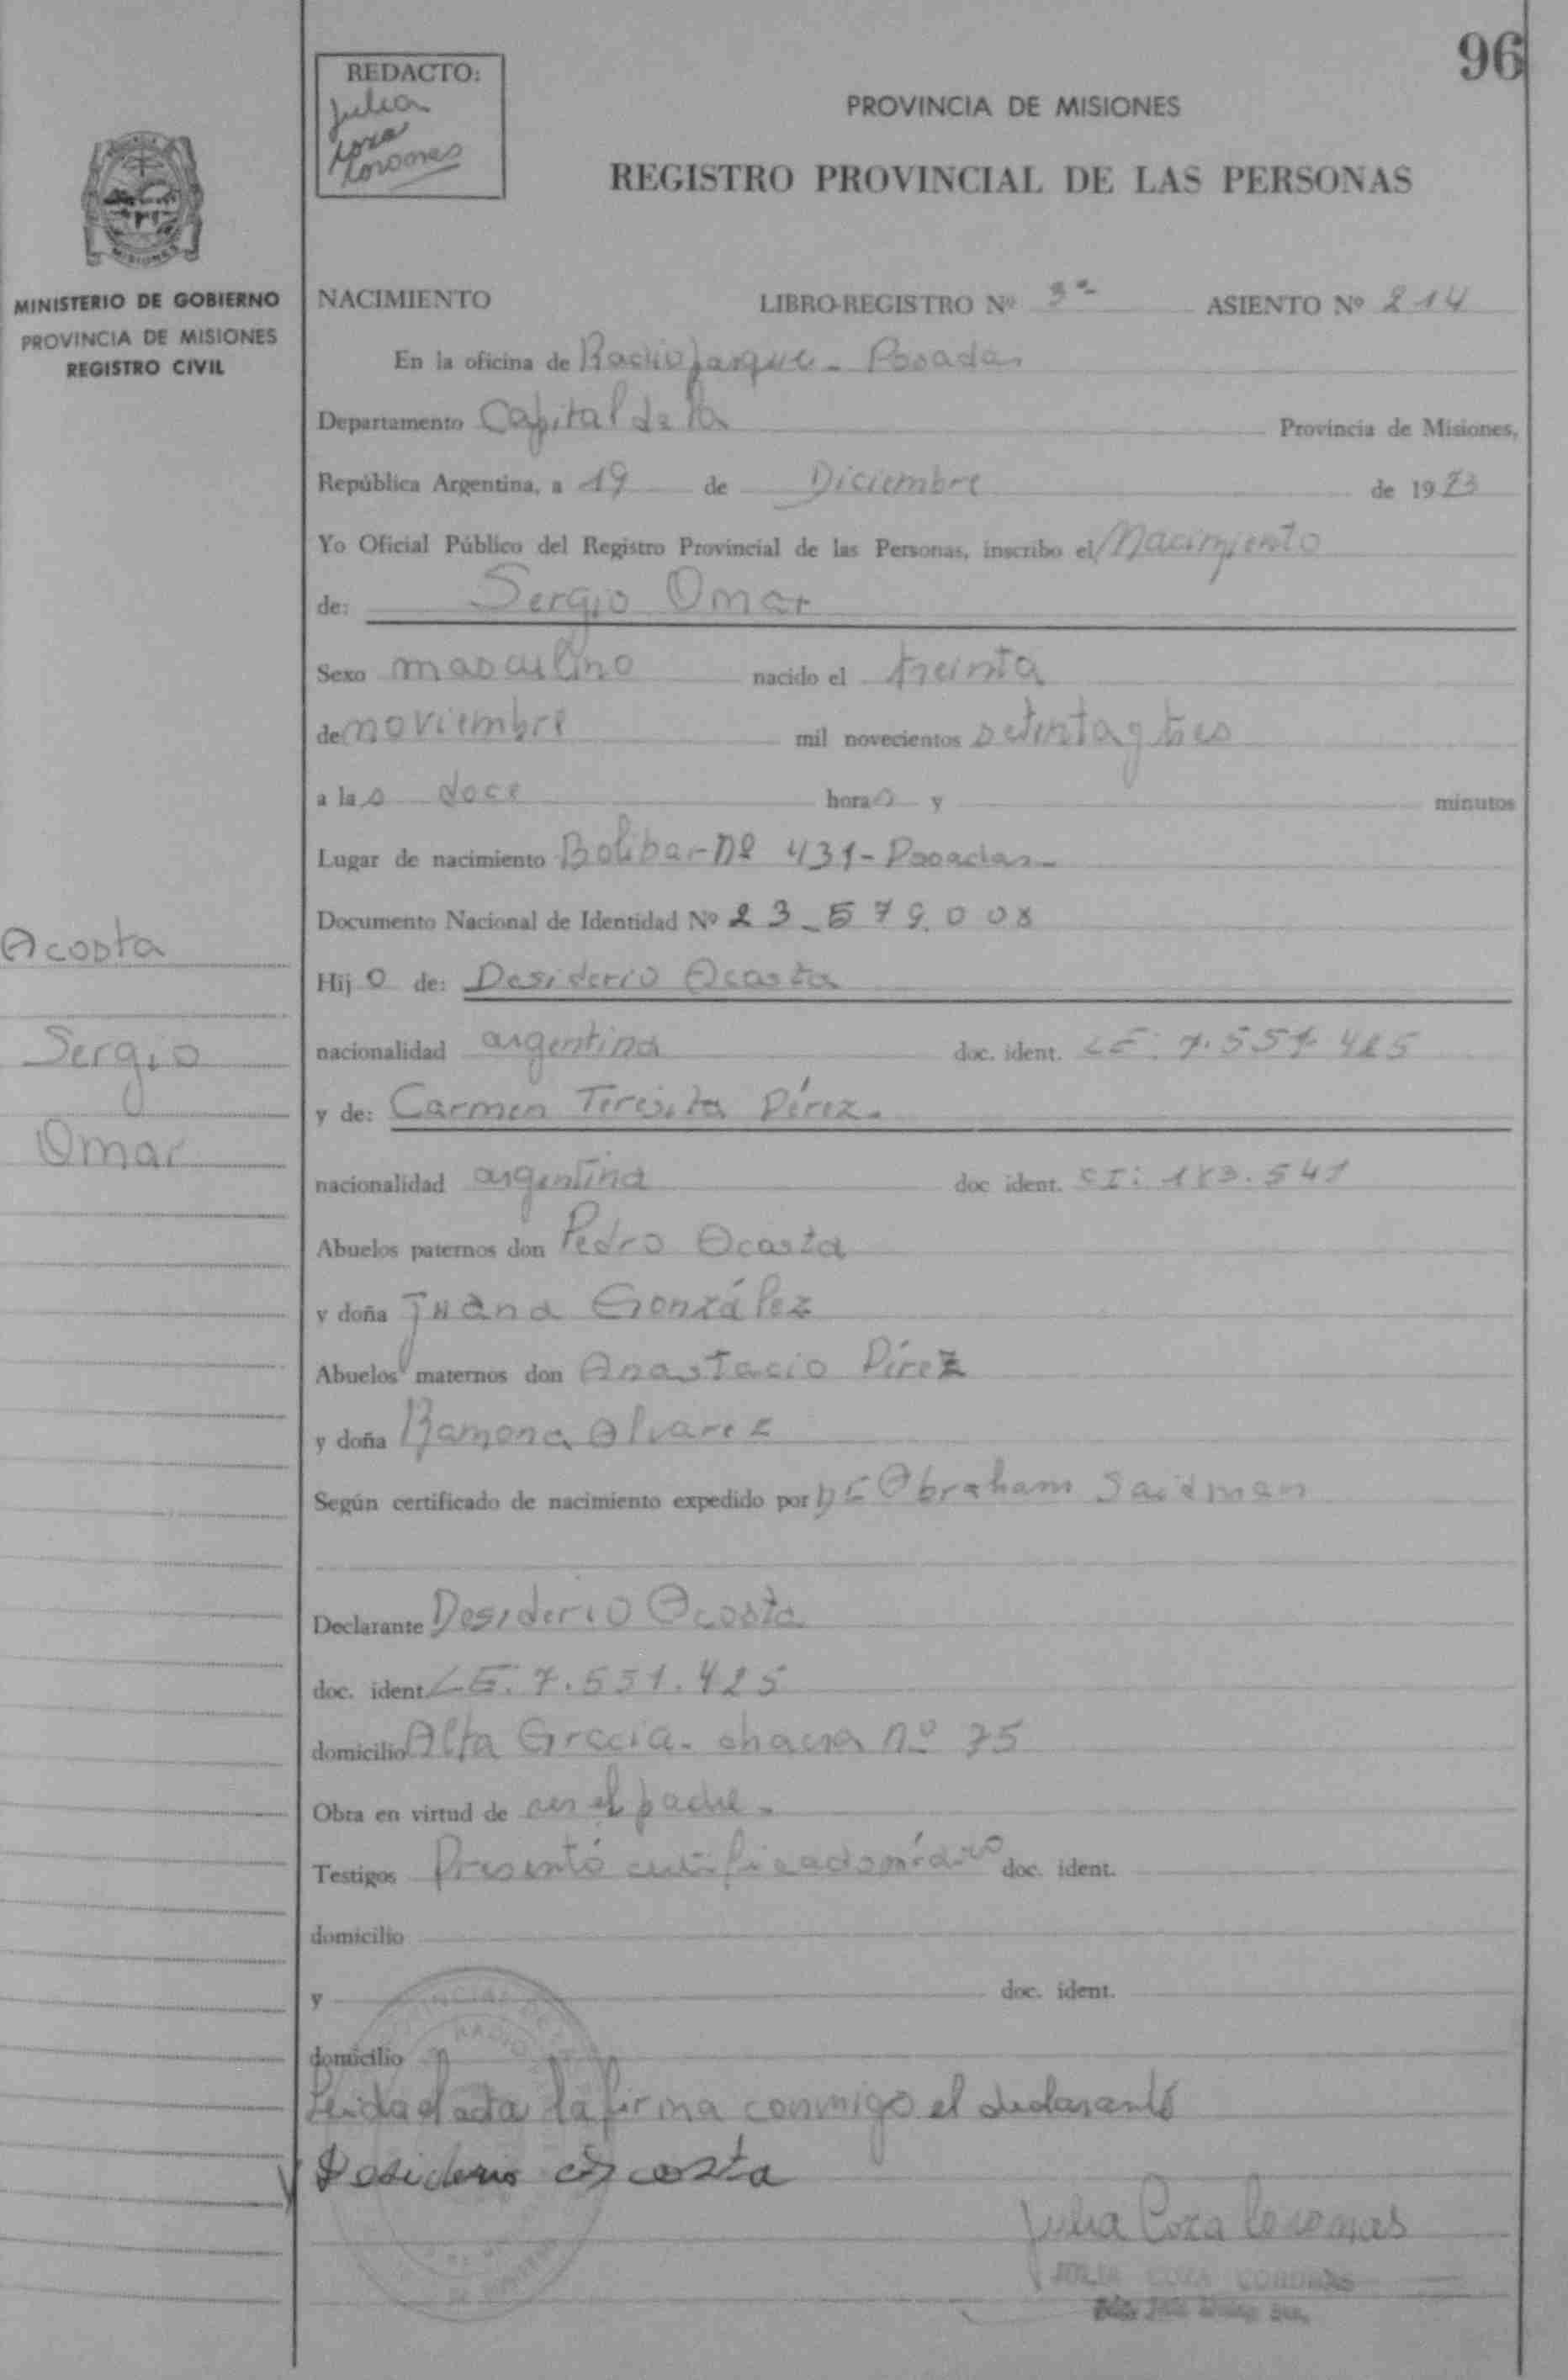 96
REDACTO:
Julia
Coza
Coronas
PROVINCIA DE MISIONES
REGISTRO PROVINCIAL DE LAS PERSONAS
MISIONES
MINISTERIO DE GOBIERNO
PROVINCIA DE MISIONES
REGISTRO CIVIL
NACIMIENTO LIBRO-REGISTRO Nº 3º ASIENTO Nº 214
En la oficina de Radio Parque - Posadas
Departamento Capital de la Provincia de Misiones,
República Argentina, a 19 de Diciembre de 1973
Yo Oficial Público del Registro Provincial de las Personas, inscribo el Nacimiento
de: Sergio Omar
Sexo masculino nacido el treinta
de noviembre mil novecientos setenta y tres
a las doce horas y minutos
Lugar de nacimiento Bolibar-Nº 431- Posadas-
Documento Nacional de Identidad Nº 23-579.008
Acosta
Hijo de: Desiderio Acosta
Sergio
nacionalidad argentina doc. ident. LE: 7.551.425
y de: Carmen Teresita Pérez.
Omar
nacionalidad argentina doc ident. CI: 183.541
Abuelos paternos don Pedro Acosta
y doña Juana González
Abuelos maternos don Anastacio Pérez
y doña Ramona Alvarez
Según certificado de nacimiento expedido por Abraham Saidman
Declarante Desiderio Acosta
doc. ident. LE. 7.551.425
domicilio Alta Gracia. chacra nº 75
Obra en virtud de ser el padre.
Testigos Presentó certificado médico doc. ident.
domicilio
y doc. ident.
domicilio
Leida el acta la firma conmigo el declarante
Desiderio Acosta
Julia Coza Coronas
JULIA COZA CORONAS